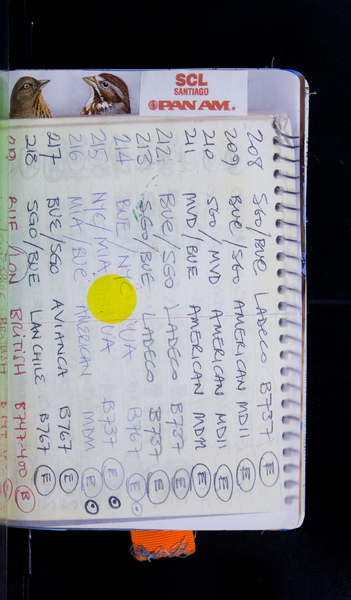 SCL
SANTIAGO
PAN AM.
208 SGO/BUE LADECO B737 F
209 BUE/SGO AMERICAN MD11 E
210 SGO/MVD AMERICAN MD11 E
211 MVD/BUE AMERICAN MD11 E
212 BUE/SGO LADECO B737 E
213 SGO/BUE LADECO B737 E
214 BUE/NYC UA B767 E
215 NYC/MIA UA B737 E
216 MIA/BUE AMERICAN MD11 E
217 BUE/SGO AVIANCA B767 E
218 SGO/BUE LAN CHILE B767 E
219 BUE/LON BRITISH B747-400 B